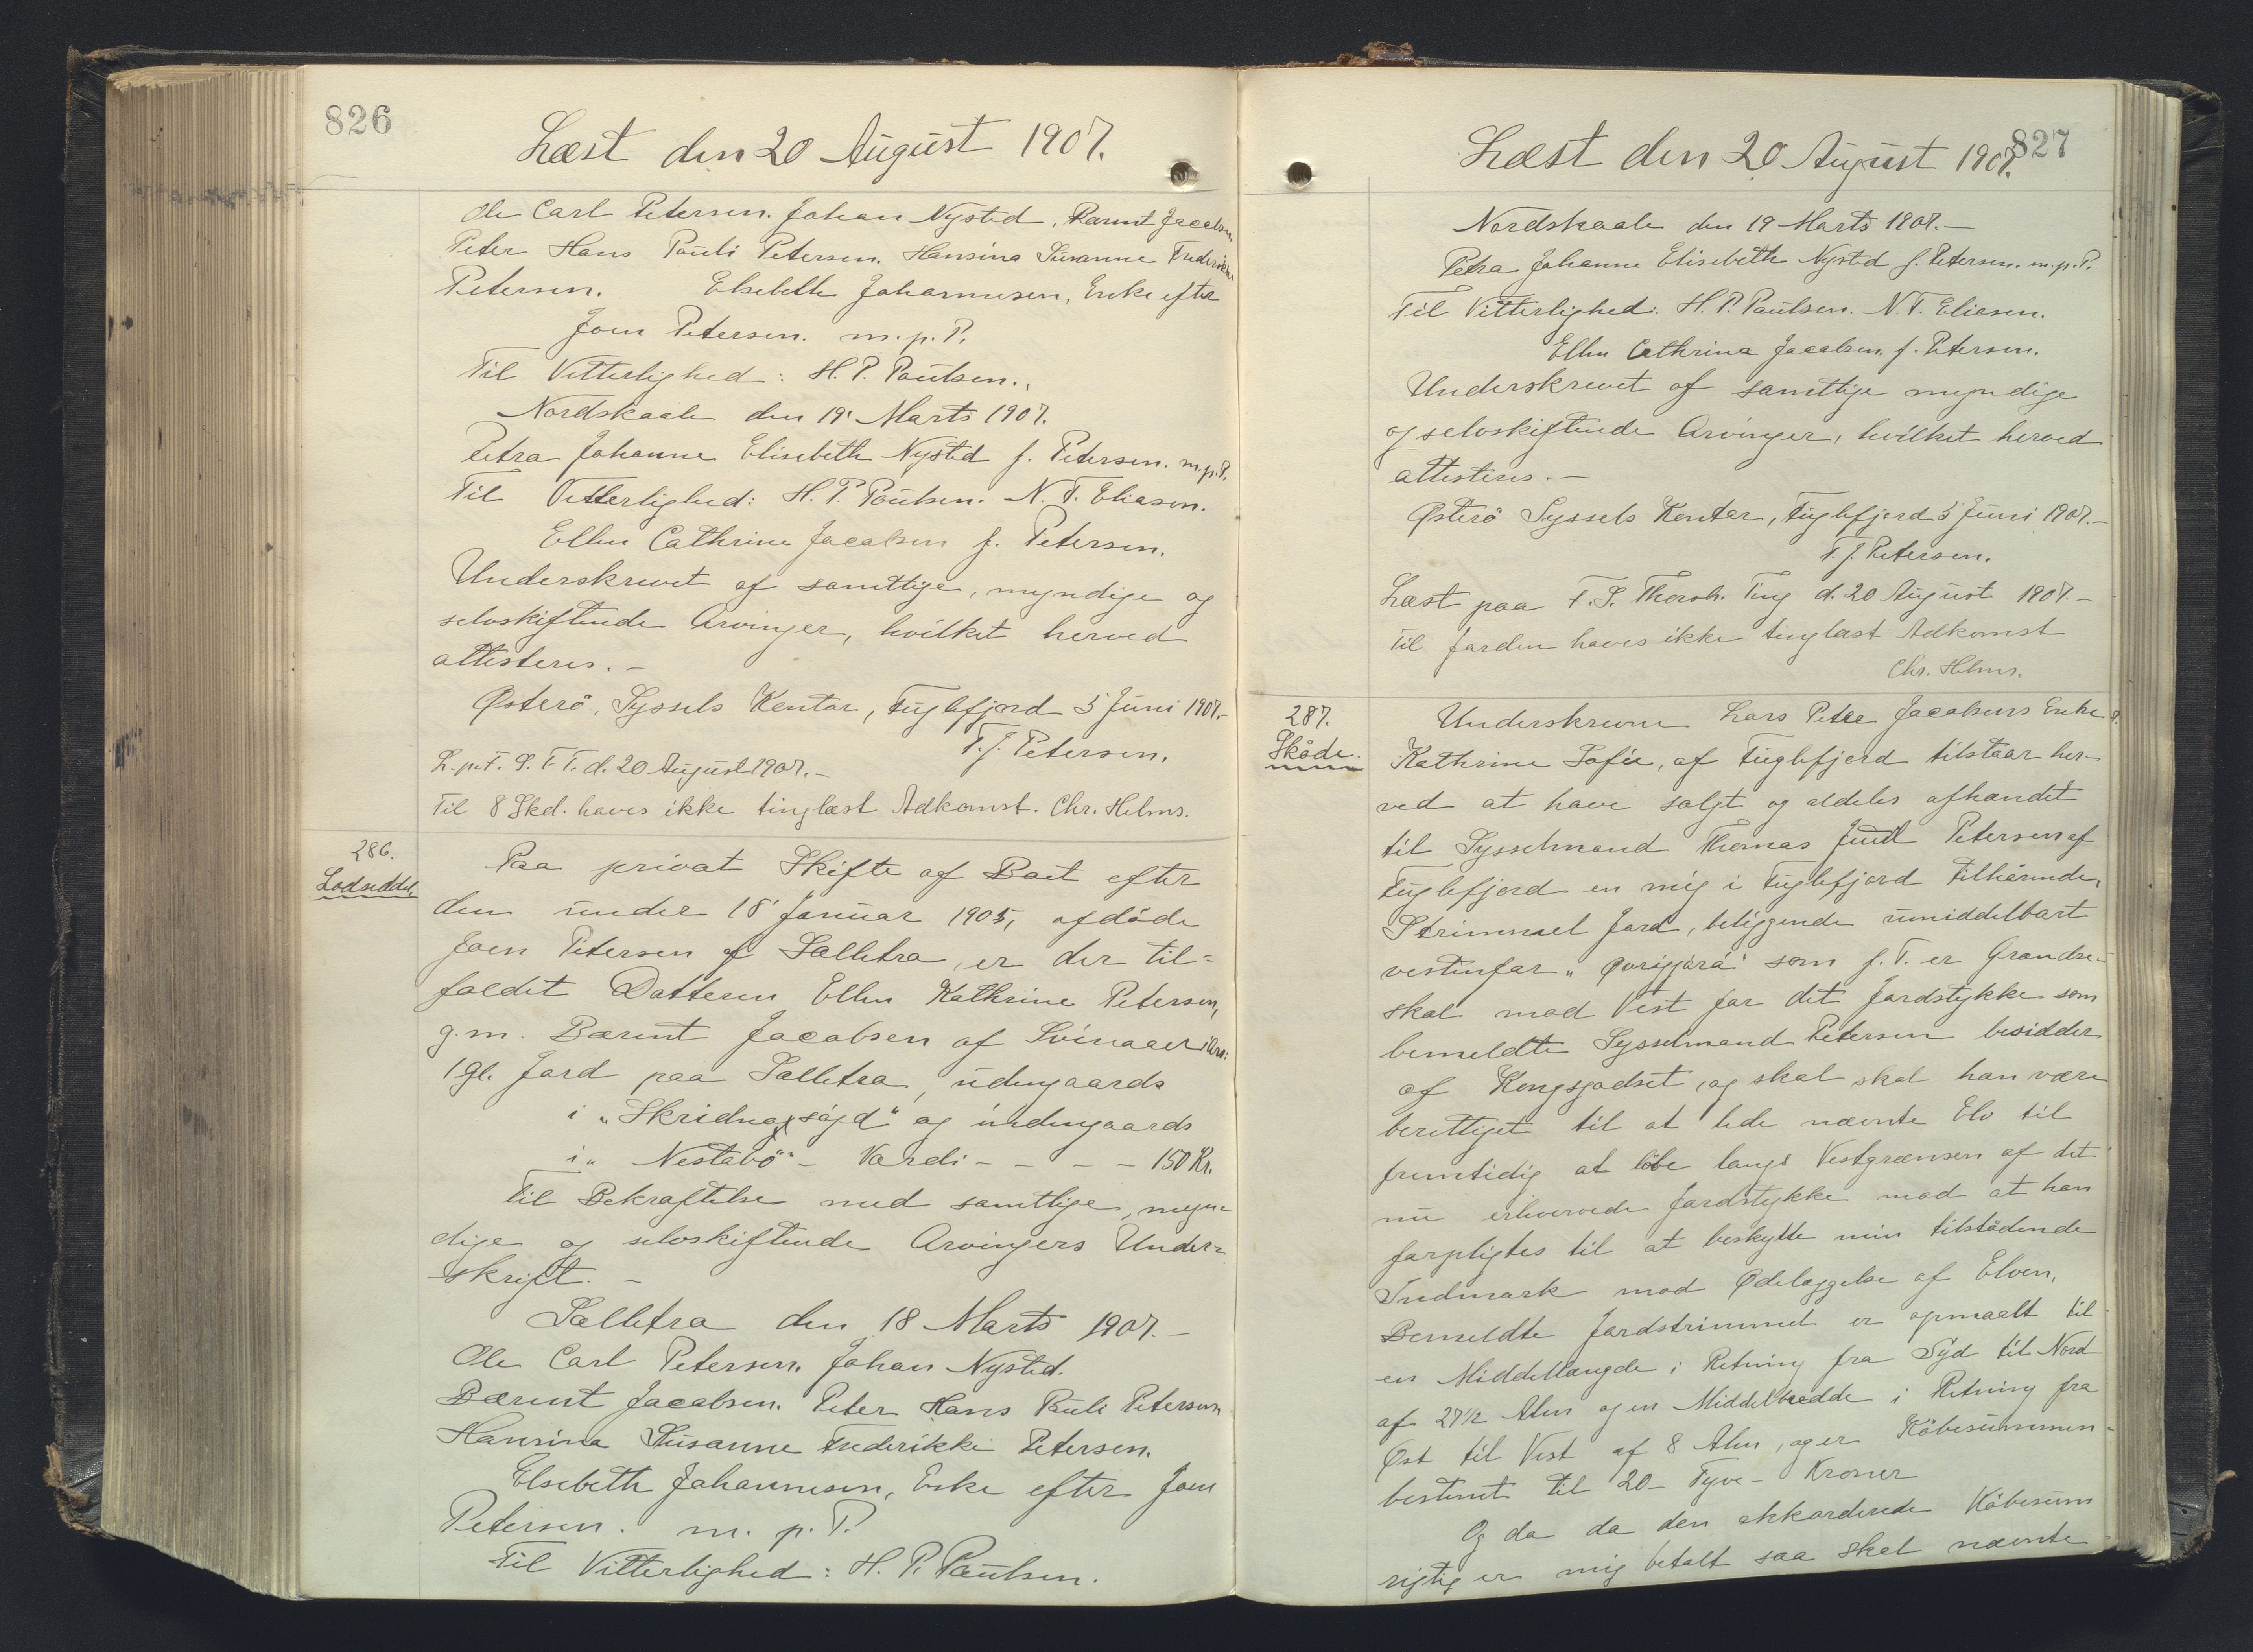 826
Læst den 20 August 1907.
Ole Carl Petersen. Johan Nysted. Barent Jacobsen
Peter Hans Pauli Petersen. Hansina Susanne Frederikke
Petersen. Elsebeth Johannesen, Enke efter
Joen Petersen. m. p. P.
Til Vitterlighed: H. P. Poulsen.
Nordskaale den 19' Marts 1907.
Petra Johanne Elisebeth Nysted f. Petersen. m.p.P.
Til Vitterlighed: H. P. Poulsen. N. F. Eliasen.
Ellen Cathrine Jacobsen f. Petersen.
Underskrevet af samtlige, myndige og
selvskiftende Arvinger, hvilket herved
attesteres. -
Østerø, Syssels Kontor, Fuglefjord 5' Juni 1907. -
T. J. Petersen.
L. p. F. S. T. T. d. 20 August 1907. -
Til 8 Skd. haves ikke tinglæst Adkomst. Chr. Helms.
286.
Lodseddel.
Paa privat Skifte af Boet efter
den under 18' Januar 1905, afdøde
Joen Petersen af Selletra, er der til-
faldet Datteren Ellen Kathrine Petersen,
g.m. Barent Jacobsen af Svinaaer
1 Gl. Jord paa Selletra, udengaards
i "Skridnasøjd" og indengaards
i "Nestabø" - Værdi - - - - 150 Kr.
Til Bekræftelse med samtlige, myn-
dige og selvskiftende Arvingers Under-
skrift. -
Selletra den 18 Marts 1907. -
Ole Carl Petersen. Johan Nysted.
Barent Jacobsen. Peter Hans Pauli Petersen
Hansina Susanne Frederikke Petersen.
Elsebeth Johannesen, Enke efter Joen
Petersen. m. p. P.
Til Vitterlighed: H. P. Poulsen.
827
Læst den 20 August 1907.
Nordskaale den 19 Marts 1907. -
Petra Johanne Elisebeth Nysted f. Petersen. m.p.P.
Til Vitterlighed: H. P. Poulsen. N. F. Eliasen.
Ellen Cathrine Jacobsen f. Petersen.
Underskrevet af samtlige myndige
og selvskiftende Arvinger, hvilket herved
attesteres. -
Østerø Syssels Kontor, Fuglefjord 5' Juni 1907. -
T. J. Petersen.
Læst paa F. S. Thorsh. Ting d. 20 August 1907. -
Til Jorden haves ikke tinglæst Adkomst
Chr. Helms.
287.
Skøde.
Underskrevne Lars Peter Jacobsens Enke
Kathrine Sofie, af Fuglefjord tilstaar her-
ved at have solgt og aldeles afhændet
til Sysselmand Thomas Juul Petersen af
Fuglefjord en mig i Fuglefjord tilhørende,
Strimmel Jord, beliggende umiddelbart
vestenfor som f. T. er Grændse-
skel mod Vest for det Jordstykke som
bemeldte Sysselmand Petersen besidder
af Kongsgodset, og skal skal han være
berettiget til at lede nævnte Elv til
fremtidig at løbe langs Vestgrænsen af det
nu erhvervede Jordstykke mod at han
forpligtes til at beskytte min tilstødende
Indmark mod Ødelæggelse af Elven,
Bemeldte Jordstrimmel er opmaalt til
en Middellængde i Retning fra Syd til Nord
af 27½ Alen og en Middelbredde i Retning fra
Øst til Vest af 8 Alen, og er Købesummen
bestemt til 20 - Tyve - Kroner
Og da da den akkorderede Købesum
rigtig er mig betalt saa skal nævnte